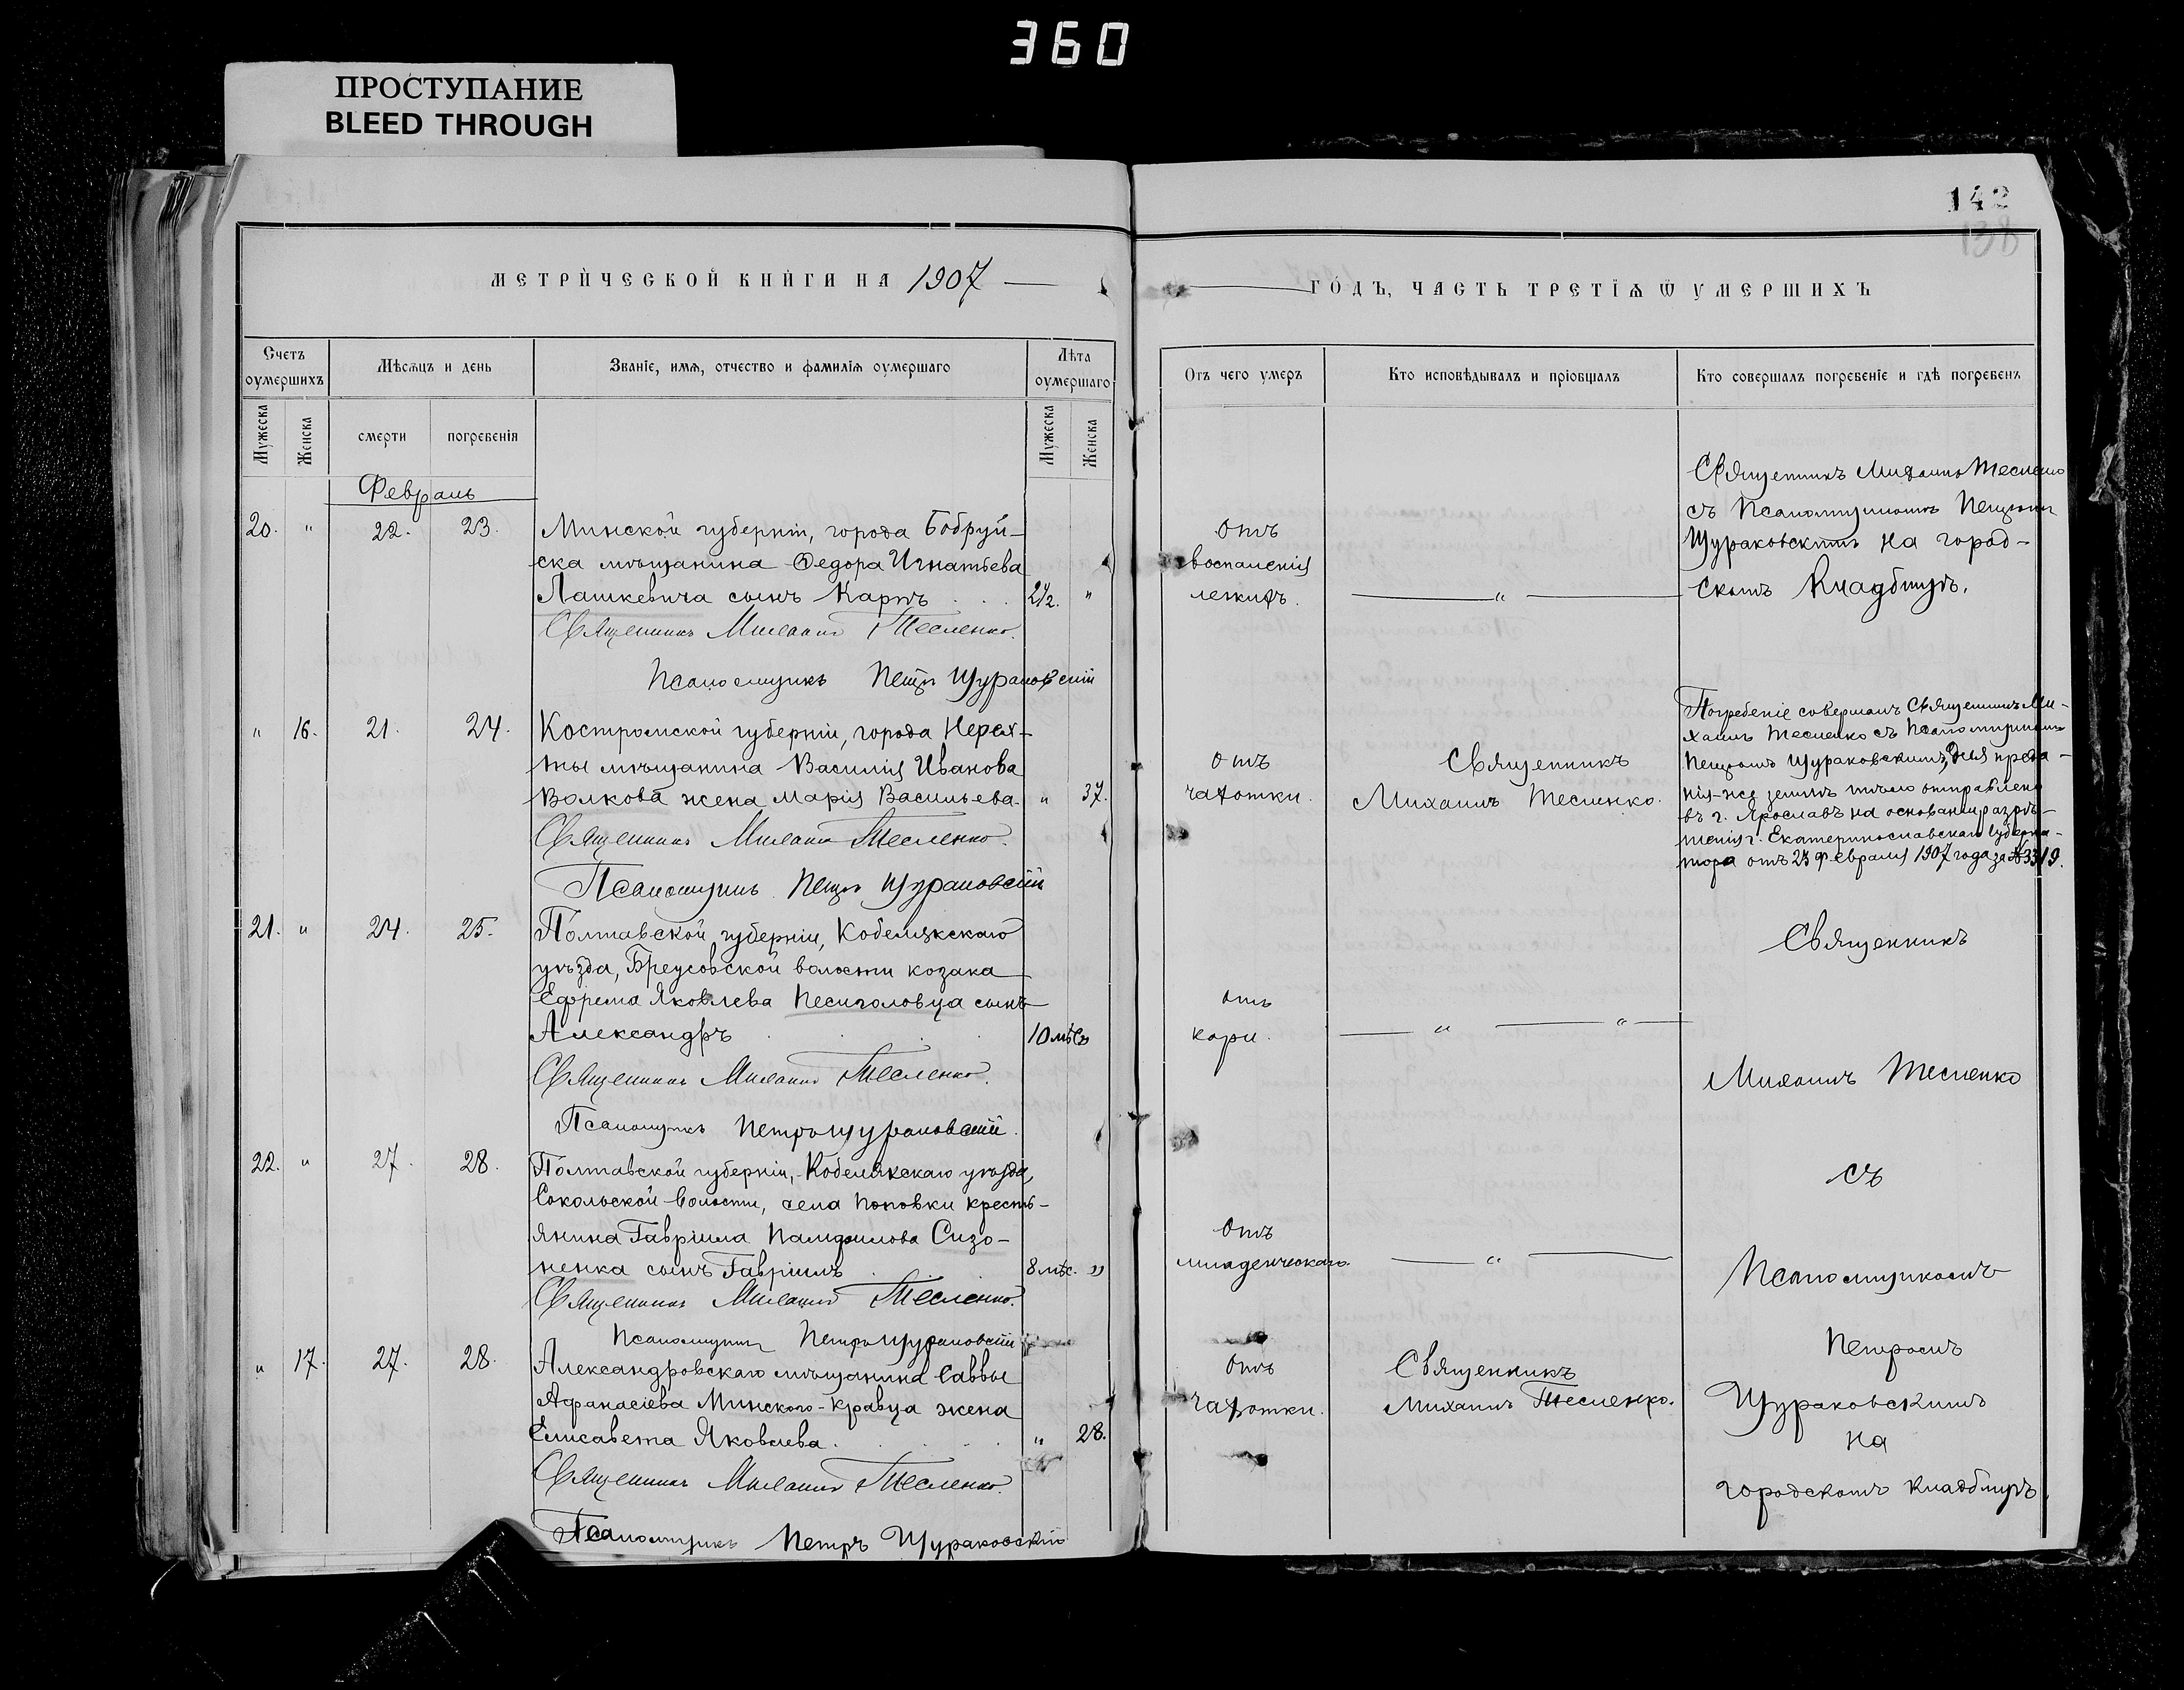 360
ПРОСТУПАНИЕ
BLEED THROUGH
142
138
МЕТРИЧЕСКОЙ КНИГИ НА 1907
ГОДЪ, ЧАСТЬ ТРЕТІѦ Ѿ УМЕРШИХЪ
Счетъ оумершихъ
Мѣсѧцъ и день
Званіе, имѧ, отчество и фамиліѧ оумершаго
Лѣта оумершаго
Отъ чего умеръ
Кто исповѣдывалъ и пріобщалъ
Кто совершалъ погребеніе и гдѣ погребенъ
Мужеска
Женска
смерти
погребенія
Мужеска
Женска
Февраль
20. " 22. 23. Минской губерніи, города Бобруй-
ска мѣщанина Ѳедора Игнатьева
Лашкевича сынъ Карпъ . . . 2½. "
Священникъ Михаилъ Тесленко.
Псаломщикъ Петръ Щураковскій
отъ
воспаленія
легкихъ.
"
Священникъ Михаилъ Тесленко
съ Псаломщикомъ Петромъ
Щураковскимъ на город-
скомъ кладбищѣ.
" 16. 21. 24. Костромской губерніи, города Нерех-
ты мѣщанина Василія Иванова
Волкова жена Марія Васильева. " 37.
Священникъ Михаилъ Тесленко.
Псаломщикъ Петръ Щураковскій
отъ
чахотки.
Священникъ
Михаилъ Тесленко.
Погребеніе совершалъ Священникъ Ми-
хаилъ Тесленко съ Псаломщикомъ
Петромъ Щураковскимъ, для преда-
нія-же землѣ тѣло отправлено
въ г. Ярославъ на основаніи разрѣ-
шенія г. Екатеринославскаго Губерна-
тора отъ 23 февраля 1907 года за № 3319.
21. " 24. 25. Полтавской губерніи, Кобелякскаго
уѣзда, Бреусовской волости козака
Ефрема Яковлева Песиголовца сынъ
Александръ . . . 10 мѣс. "
Священникъ Михаилъ Тесленко.
Псаломщикъ Петръ Щураковскій.
отъ
кори.
" "
Священникъ
Михаилъ Тесленко
22. " 27. 28. Полтавской губерніи, Кобелякскаго уѣзда,
Сокольской волости, села Поповки кресть-
янина Гавріила Памфилова Сизо-
ненка сынъ Гавріилъ . . . 8 мѣс. "
Священникъ Михаилъ Тесленко.
Псаломщикъ Петръ Щураковскій
отъ
младенческаго.
"
съ
Псаломщикомъ
" 17. 27. 28. Александровскаго мѣщанина Саввы
Афанасіева Минского-Кравца жена
Елисавета Яковлева. . . . " 28.
Священникъ Михаилъ Тесленко.
Псаломщикъ Петръ Щураковскій
отъ
чахотки.
Священникъ
Михаилъ Тесленко.
Петромъ
Щураковскимъ
на
городскомъ кладбищѣ.